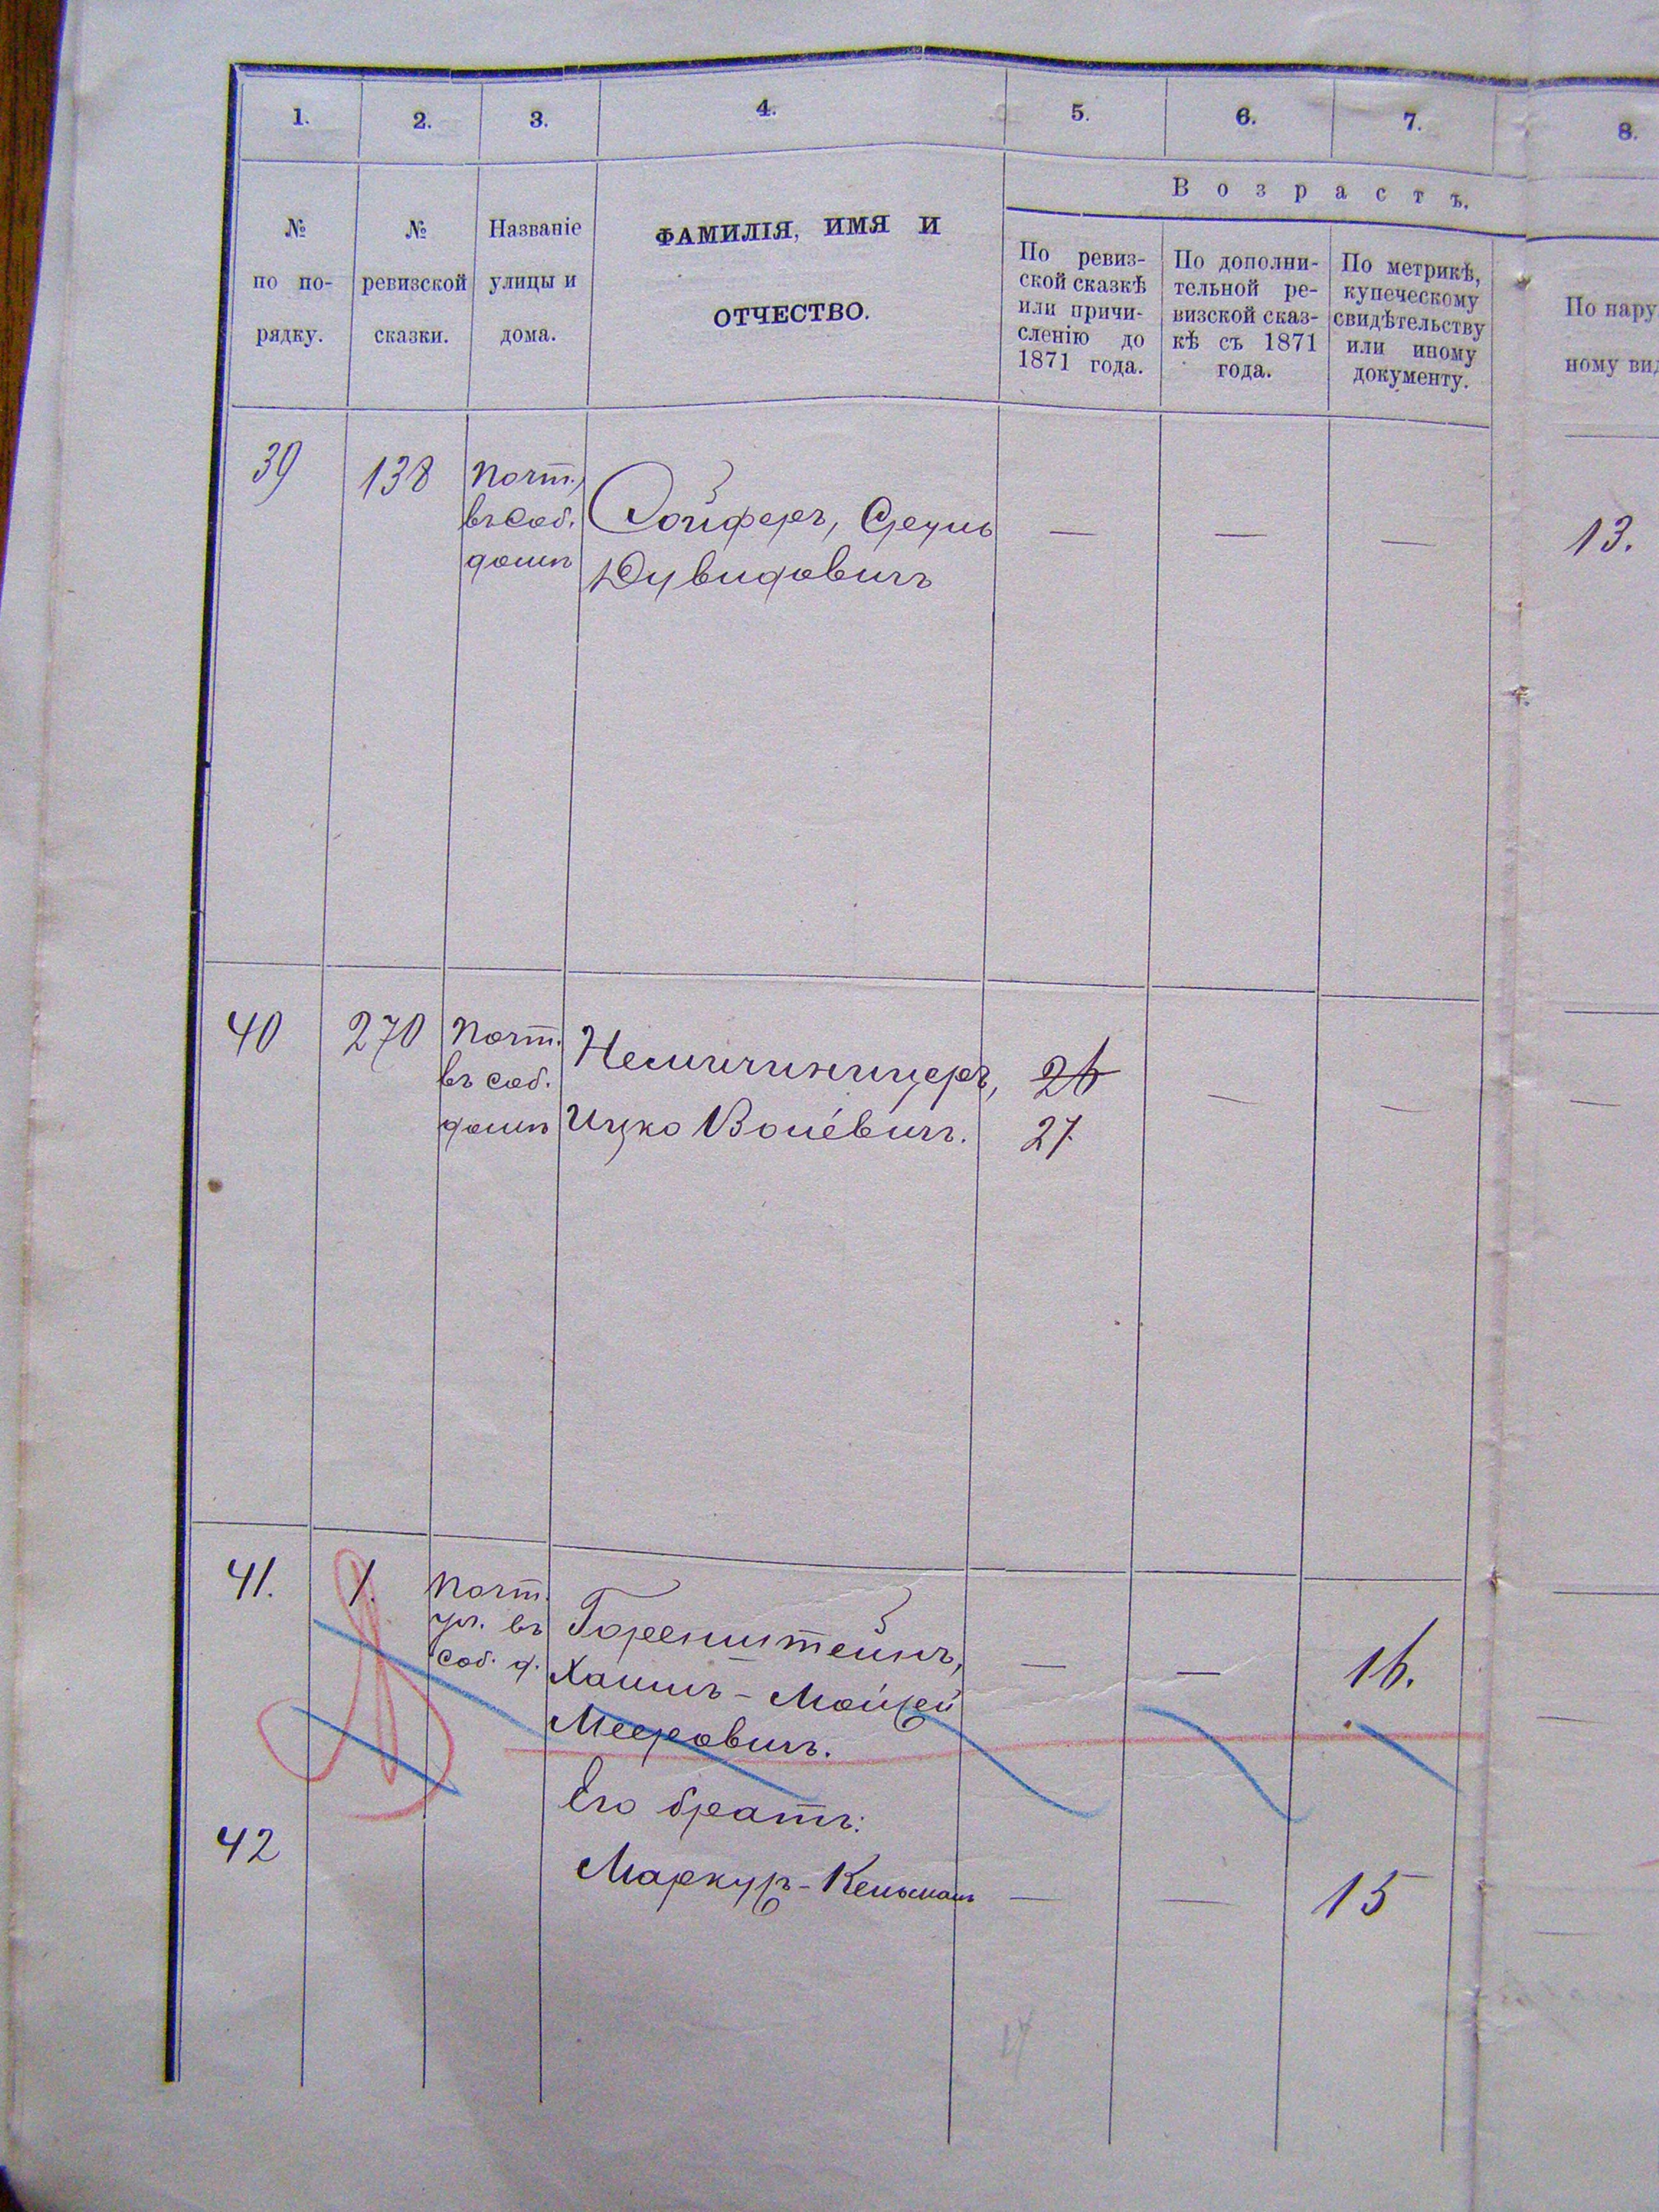 1. 2. 3. 4. 5. 6. 7. 8.
№ по по-рядку.
№ ревизской сказки.
Названіе улицы и дома.
ФАМИЛІЯ, ИМЯ И
ОТЧЕСТВО.
Возрастъ.
По ревиз-
ской сказкѣ
или причи-
сленію до
1871 года.
По дополни-
тельной ре-
визской сказ-
кѣ съ 1871
года.
По метрикѣ,
купеческому
свидѣтельству
или иному
документу.
По нару
ному вид
39 138 Почт.,
въ соб.
домѣ
Сойферъ, Сруль
Дувидовичъ
— — — 13.
40 270 Почт.
въ соб.
домѣ
Немичиницеръ,
Ицко Волёвичъ.
26
27.
— — —
41. 1. Почт.
ул. въ
соб. д.
Горенштейнъ,
Хаимъ-Мойсей
Мееровичъ.
— — 16. —
Его братъ:
42 Маркузъ-Кельманъ — — 15 —